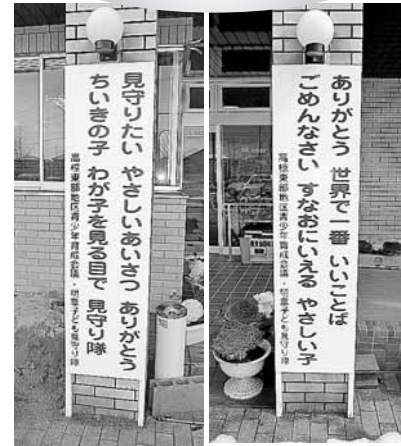 見守りたい やさしいあいさつ ありがとう
ちいきの子 わが子を見る目で 見守り隊
高椋東部地区青少年育成会議・明章子ども見守り隊
ありがとう 世界で一番 いいことば
ごめんなさい すなおにいえる やさしい子
高椋東部地区青少年育成会議・明章子ども見守り隊